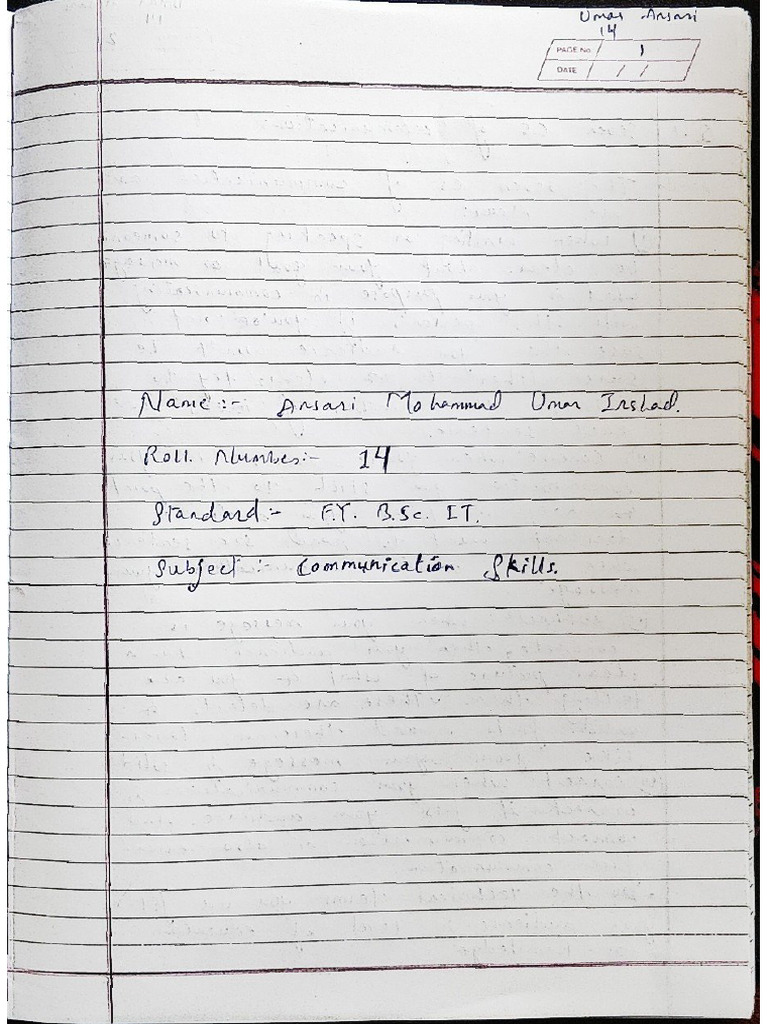 Umar Ansari
14
PAGE No. 1
DATE / /
Name :- Ansari Mohammad Umar Irshad.
Roll Number:- 14
Standard:- F.Y. B.Sc. IT.
Subject :- Communication Skills.